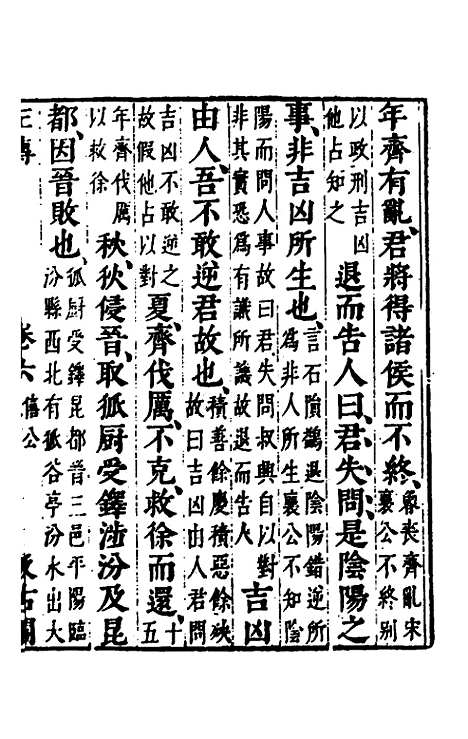 年齊有亂君將得諸侯而不終魯喪齊亂宋襄公不終別
以政刑吉凶他占知之退而告人曰君失問是陰陽之
事非吉凶所生也言石隕鷁退陰陽錯逆所爲非人所生襄公不知陰
陽而問人事故曰君失問叔興自以對非其實恐爲有識所譏故退而告人吉凶
由人吾不敢逆君故也積善餘慶積惡餘殃故曰吉凶由人君問
吉凶不敢逆之故假他占以對夏齊伐厲不克救徐而還十五
年齊伐厲以救徐秋狄侵晉取狐厨受鐸涉汾及昆
都因晉敗也狐厨受鐸昆都晉三邑平陽臨汾縣西北有狐谷亭汾水出大
僖公